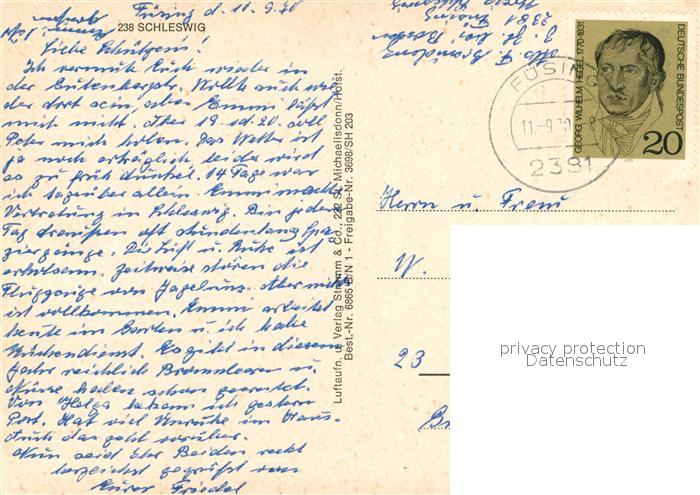 Füsing d. 10.9.70
238 SCHLESWIG
Liebe Schützens!
Ich vermute Euch wieder in
der Gutenbergstr. Wollte auch wie
der dort sein, aber Emmi läßt
mich nicht. Aber 19. od. 20. soll
Peter mich holen. Das Wetter ist
ja noch erträglich, leider wird
es zu früh dunkel. 14 Tage war
ich tagsüber allein. Emmi machte
Vertretung in Schleswig. Bin jeden
Tag draußen oft stundenlang Spa
ziergänge. Die Luft u. Ruhe ist
erholsam. Zeitweise stören die
Flugzeuge von Jagel
ist vollkommen. Emmi arbeitet
heute im Garten u. ich habe
Küchendienst. Es gibt in diesem
Jahr reichlich Brombeeren u.
Nüsse haben schon geerntet.
Von Helga bekam ich gestern
Post. Hat viel Unruhe im Haus.
Auch das geht vorüber.
Nun seid Ihr Beiden recht
herzlichst gegrüßt von
Eurer Friedel
2381 Füsing
Luftaufn. u. Verlag Stramm & Co., 222 St. Michaelisdonn/Holst.
Best.-Nr. 6865 B/N 1 - Freigabe-Nr. 3698/SH 203
GEORG WILHELM FRIEDRICH HEGEL 1770-1831
DEUTSCHE BUNDESPOST
20
FÜSING
11.-9.70
2381
Herrn u. Frau
W.
23
privacy protection
Datenschutz